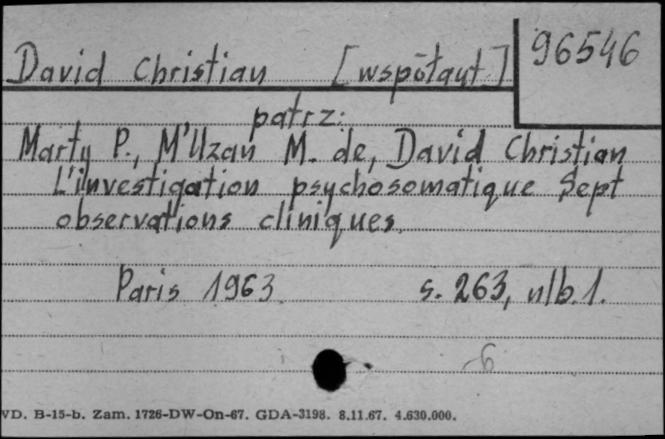 David Christian [współaut.]
96546
patrz:
Marty P., M'Uzan M. de, David Christian
L'investigation psychosomatique Sept
observations cliniques.
Paris 1963. s. 263, nlb. 1.
6
VD. B-15-b. Zam. 1726-DW-On-67. GDA-3198. 8.11.67. 4.630.000.